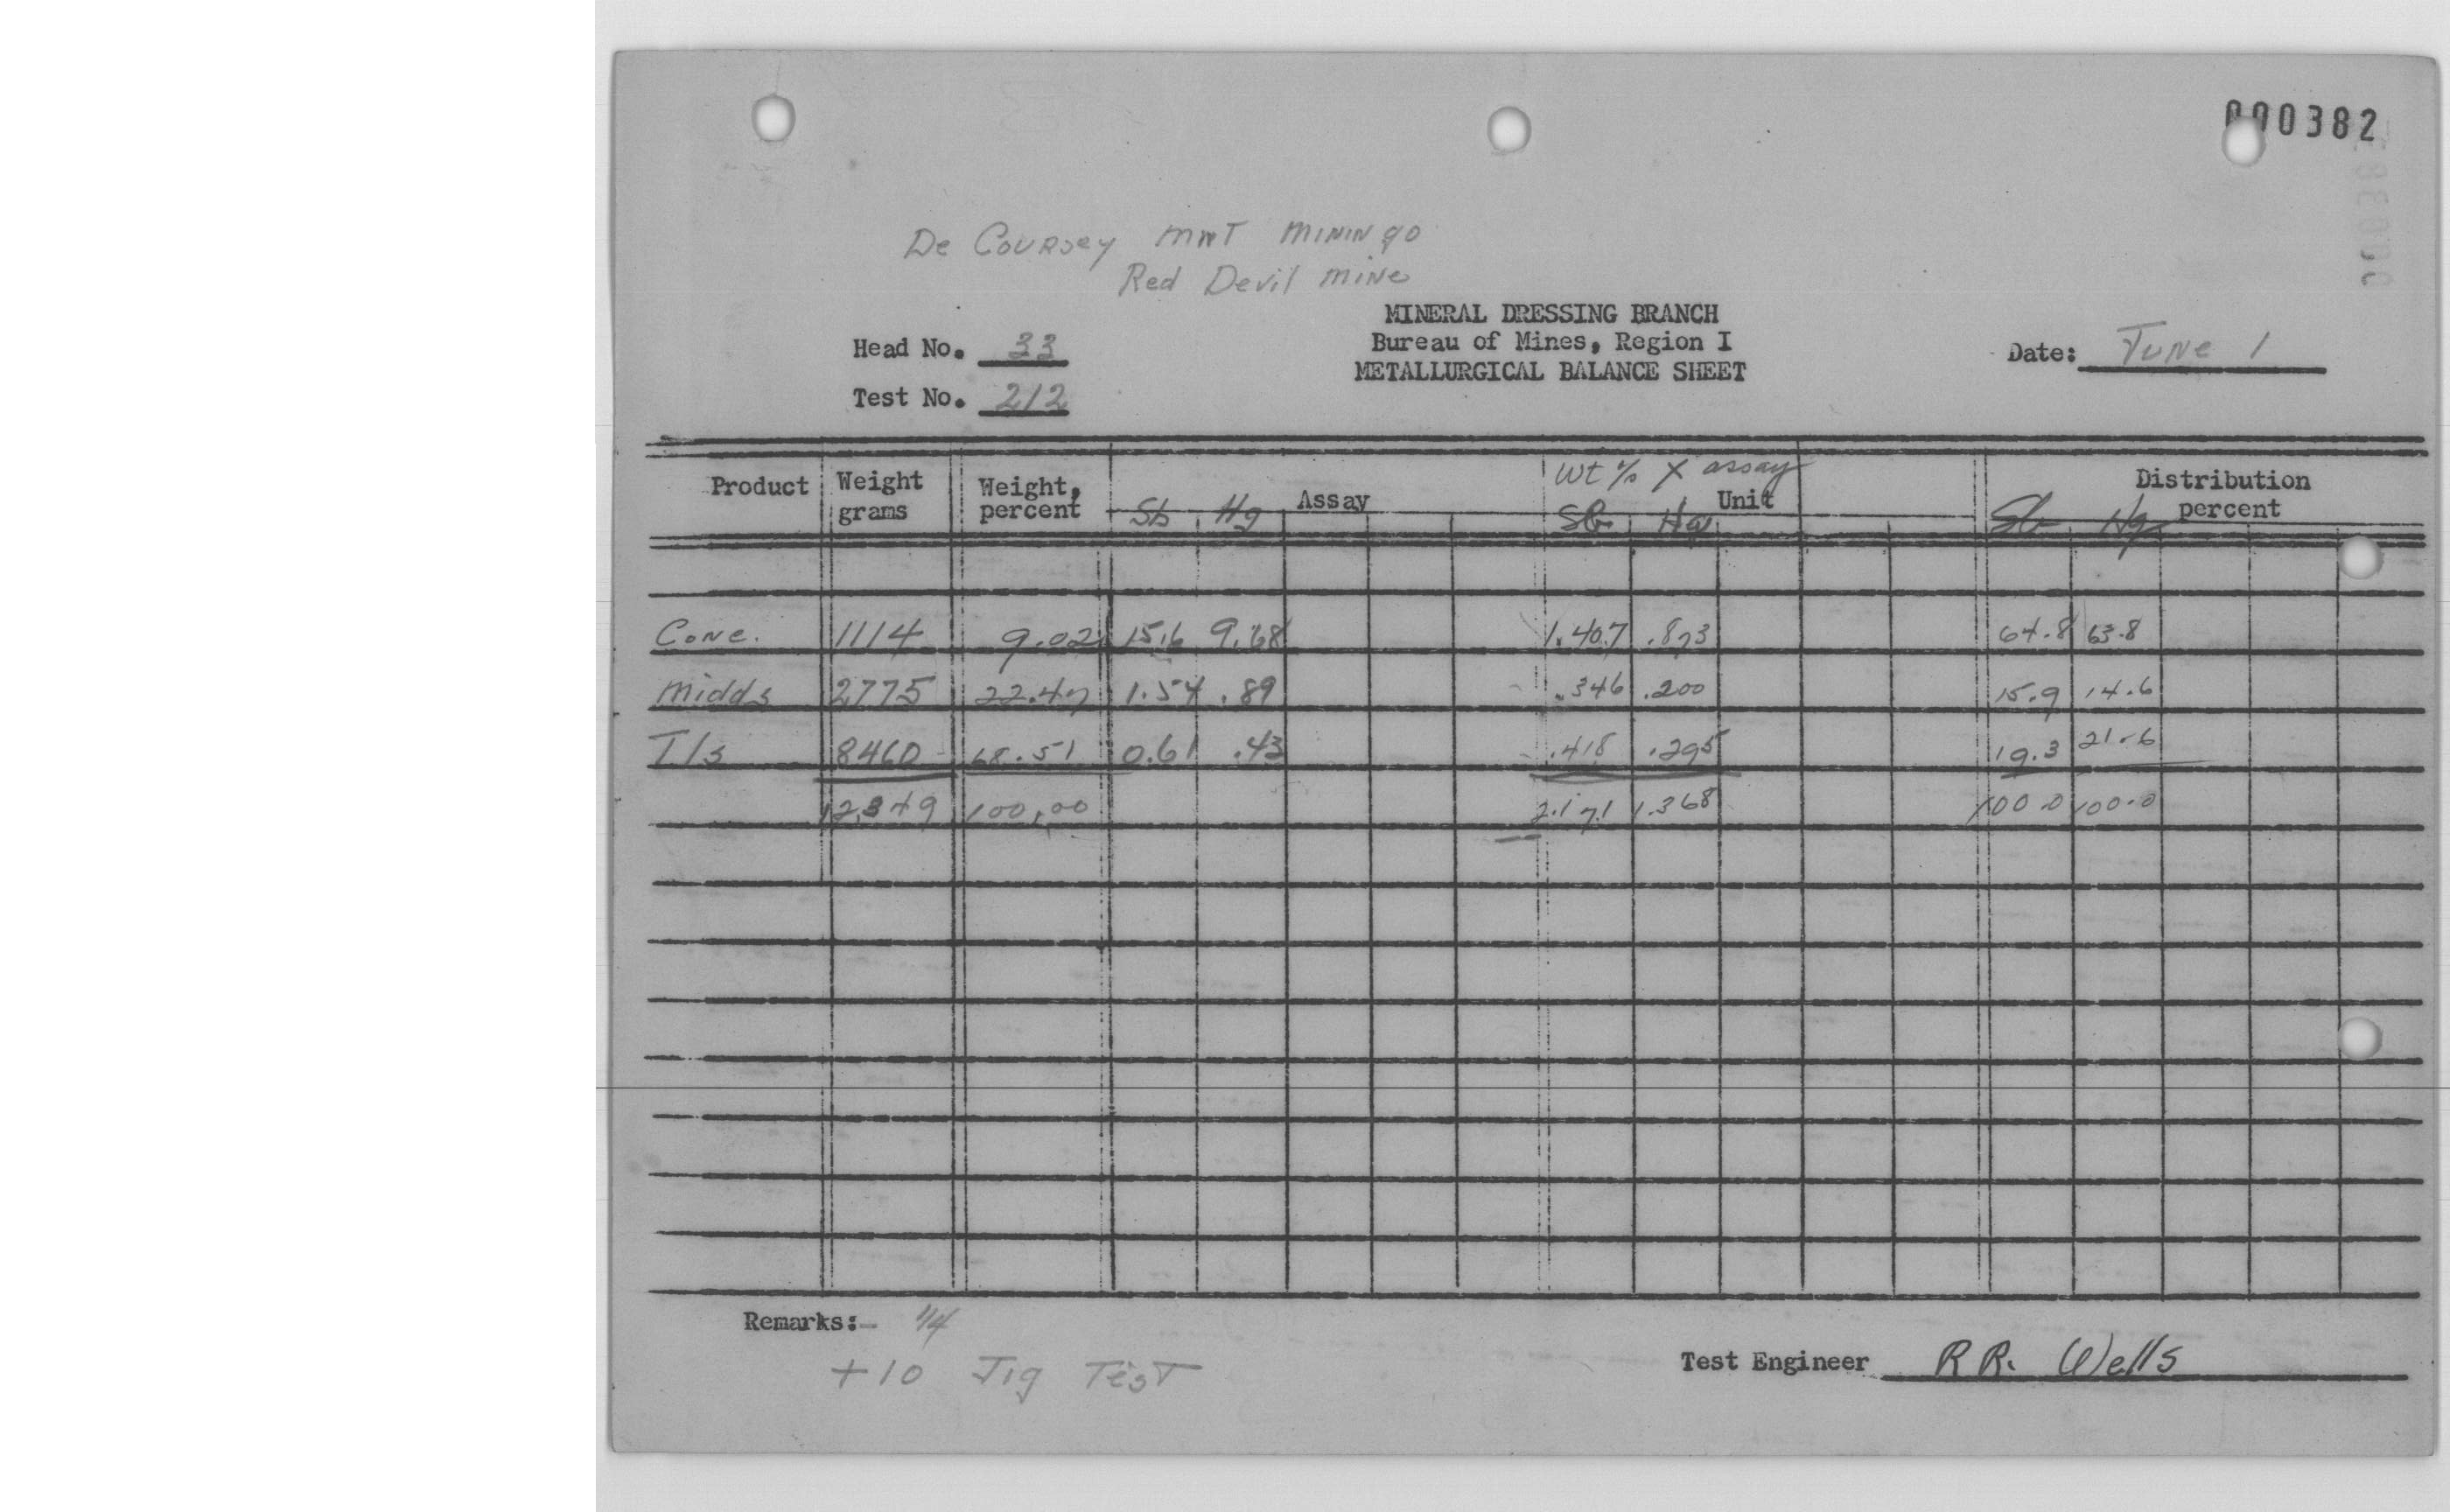 000382
De Coursey MNT MININgo
Red Devil MiNe
MINERAL DRESSING BRANCH
Head No. 33 Bureau of Mines, Region I Date: JuNe 1
METALLURGICAL BALANCE SHEET
Test No. 212
Product Weight grams Weight, percent Assay Wt % X assay Unit Distribution percent
Sb Hg Sb Hg Sb Hg
Conc. 1114 9.02 15.6 9.68 1.407 .873 64.8 63.8
Midds 2775 22.47 1.54 .89 .346 .200 15.9 14.6
Tls 8460 68.51 0.61 .43 .418 .295 19.3 21.6
12,349 100.00 2.171 1.368 100.0 100.0
Remarks:- 1/4
+10 Jig Test
Test Engineer R R. Wells